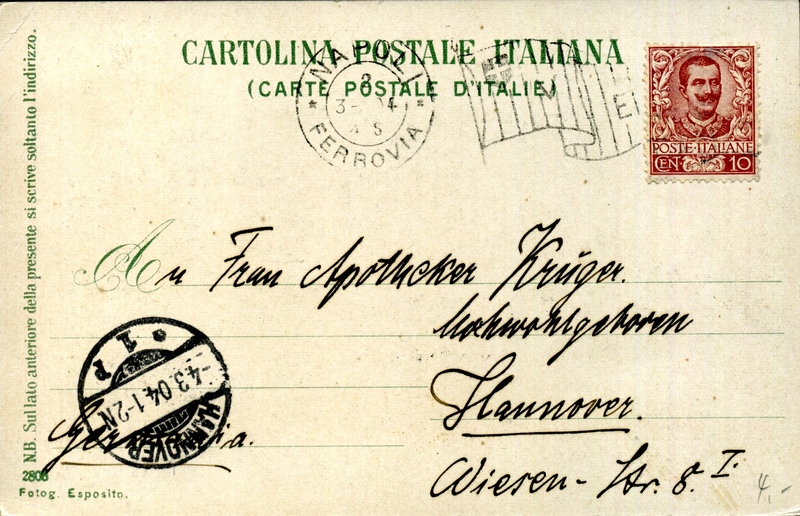 CARTOLINA POSTALE ITALIANA
(CARTE POSTALE D'ITALIE)
NAPOLI
FERROVIA
POSTE·ITALIANE
CEN· 10
N.B. Sul lato anteriore della presente si scrive soltanto l'indirizzo.
An Frau Apotheker Krüger.
Hochwohlgeboren
Hannover.
Wiesen-Str. 8. I.
Germania.
* 1 P
-4.3.04.1-2N
HANNOVER
2806
Fotog. Esposito.
4,-